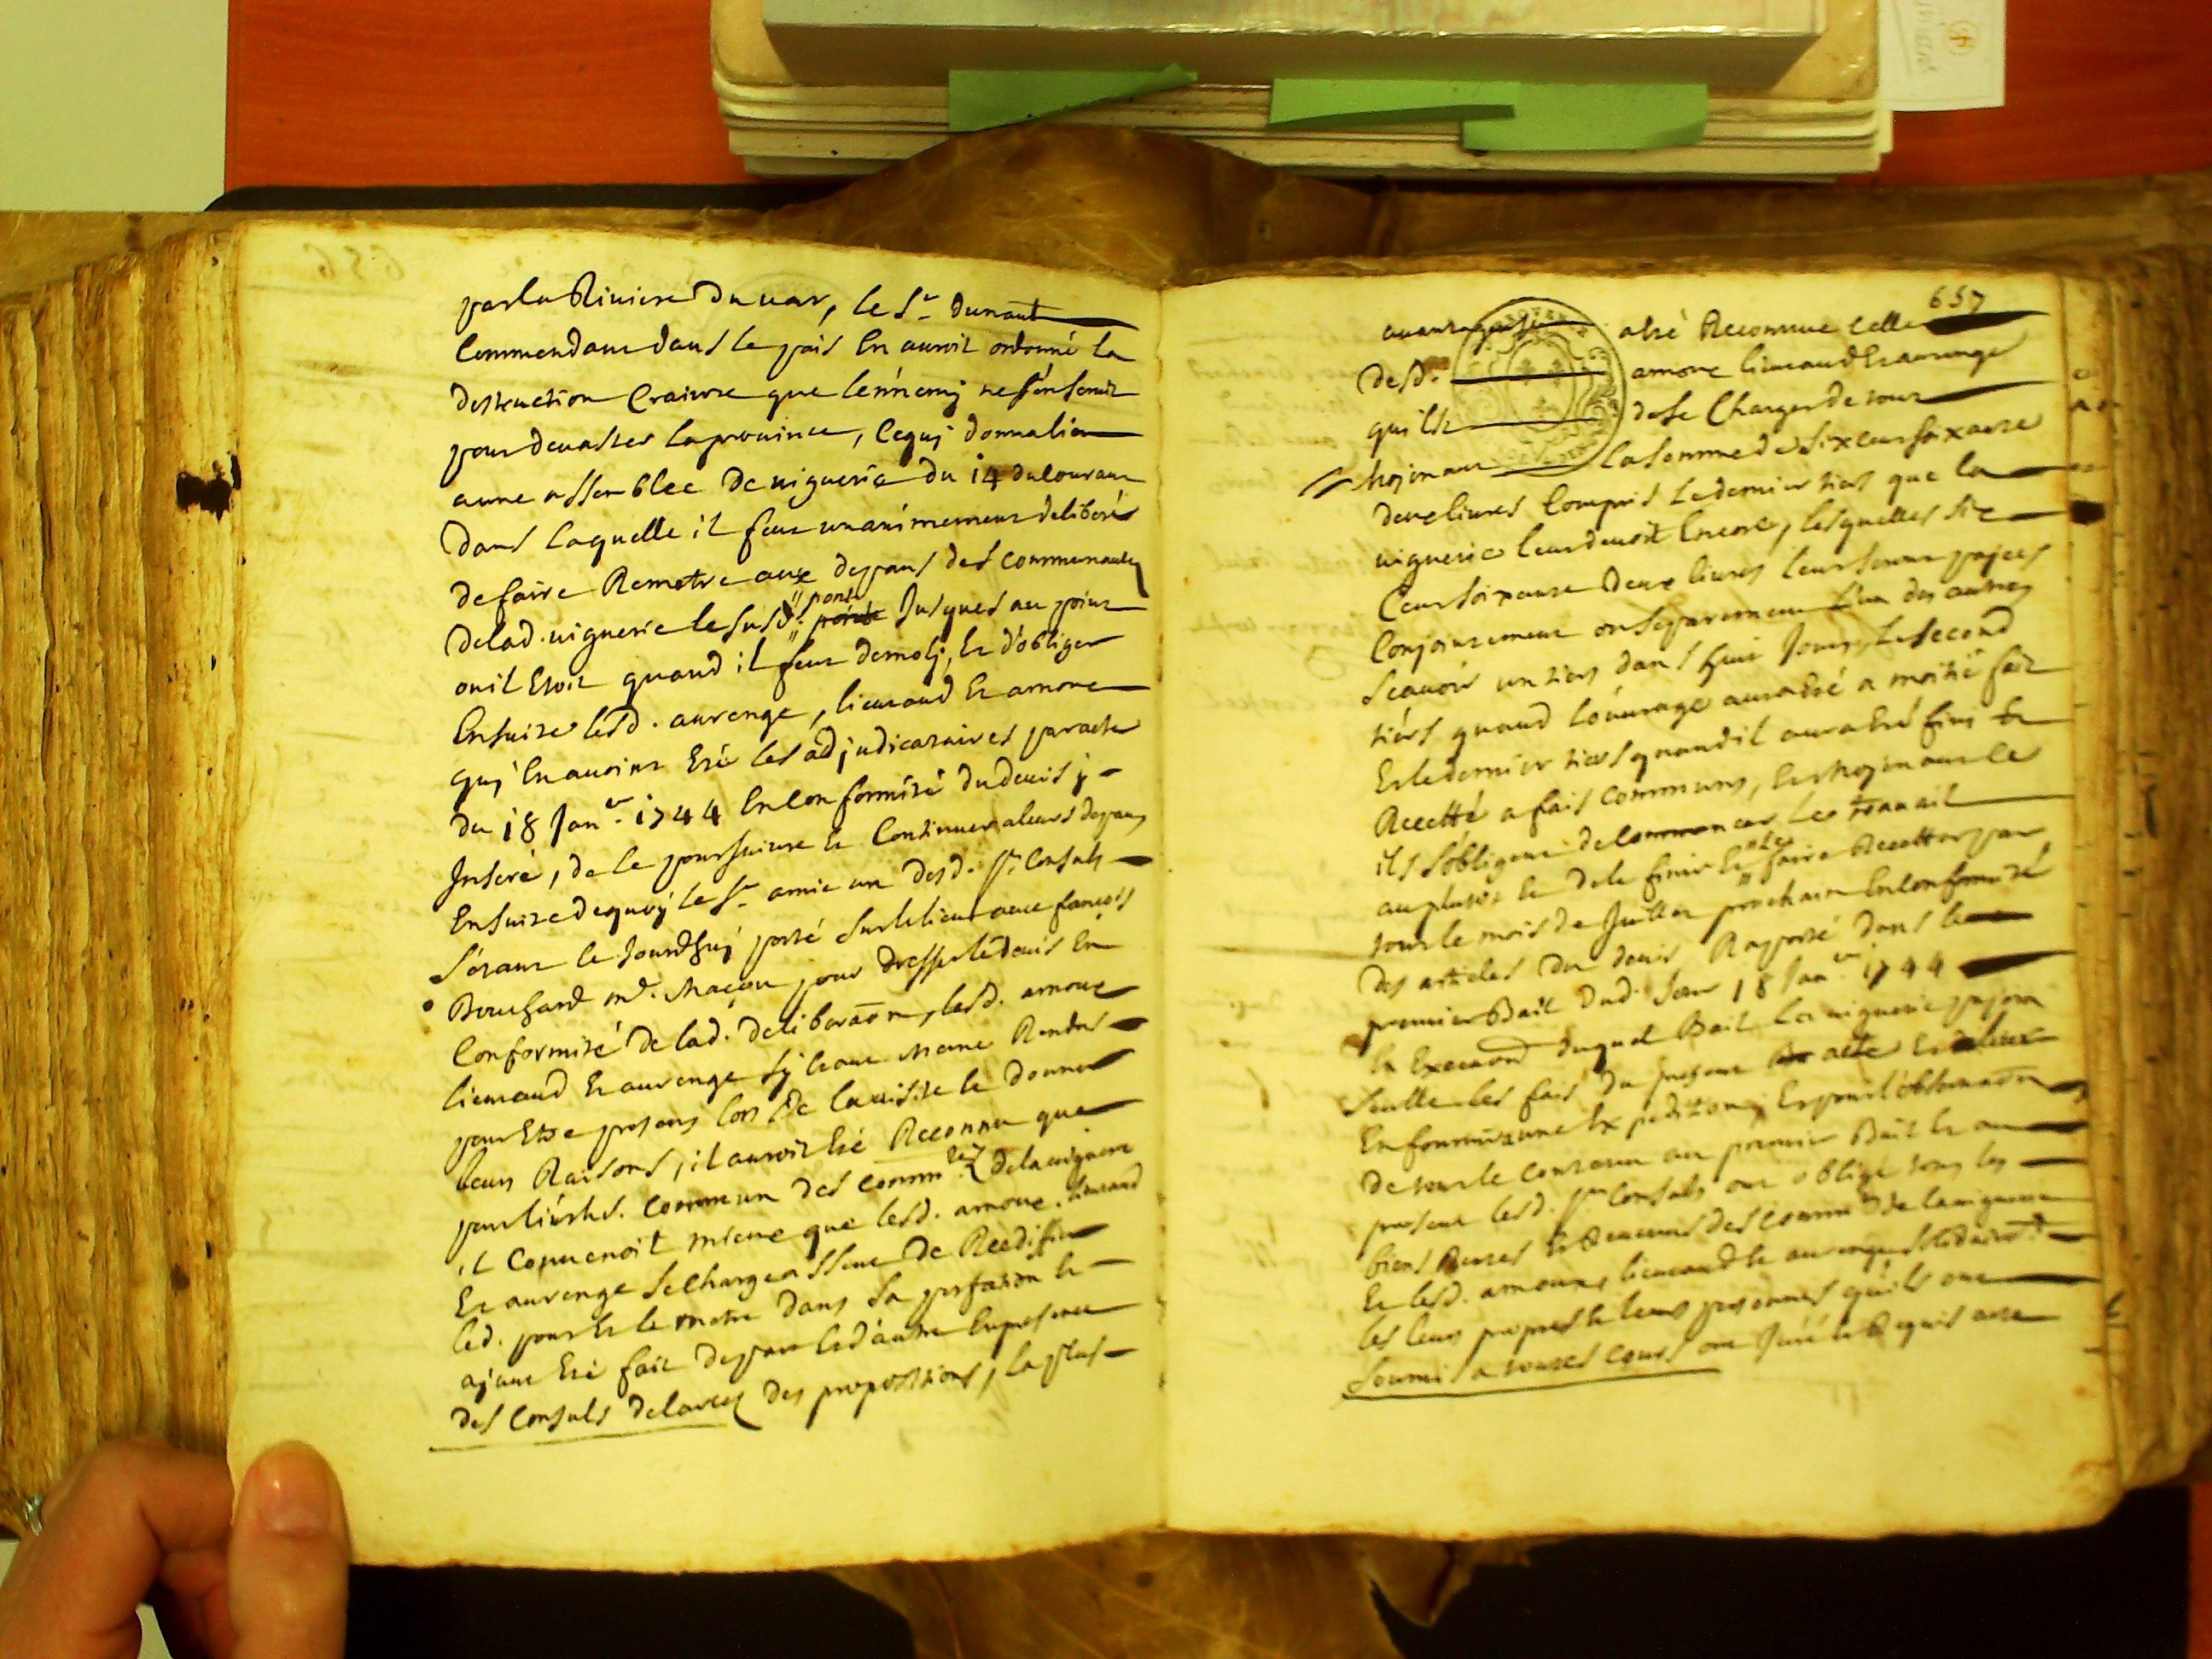 par la Riviere du var, le Sr. Dunant
Commendant dans le païs En auroit ordonné la
destruction Crainte que lénnemÿ ne s'én servit
pour devaster la province, Ce quj donna lieu
a une assemblée de viguerie du 14 du Courant
dans laquelle il feut unanimement deliberé
de faire Remetre aux depans des Communautés
de lad. viguerie le susd. pont Jusques au point
ou il Etoit quand il feut demolj, Et d'obliger
Ensuite lesd. aurenge, lieutaud Et amoux
quj En avoint Eté les adjudicataires par acte
du 18 Janer. 1744 En Conformité du devis ÿ
Inseré, de le poursuivre Et Continuer a leurs depans
Ensuite de quoÿ le Sr. amic un desd. Srs. Consuls
s'étant le Jourdhuj porté sur le lieu avec françois
Bouchard md. Maçon pour dresser le devis En
Conformité de lad. deliberaõn, lesd. amoux
lieutaud Et aurenge sÿ Etant meme Rendus
pour Etre presens lors de la visite Et donner
leurs Raisons, il auroit Eté Reconnu que
pour l'intérêt Commun des Commtez de la viguerie
il Convenoit mieux que lesd. amoux, lieutaud
Et aurenge se Chargeassent de Reedifier
led. pont Et le metre dans sa perfaõn Et
ajant Eté fait de part Et d'autre En presence
des Consuls delareg des propositions, la plus
657
avantageuse a Eté Reconnue Celle
desd. amoux lieutaud Et aurenge
qui Est de se Charger de tout
moÿenant la somme de six cent soixante
deux livres Compris le dernier tiers que la
viguerie leur devoit Encore, lesquelles six
Cent soixante deux livres leur seront paÿées
Conjointement ou separement l'un des autres
scavoir un tiers dans huit Jours, le second
tiers quand l'ouvrage aura Eté a moitié fait
Et le dernier tiers quand il aura Eté fini Et
Recetté a fais communs, Et moÿenant Ce
ils s'obligent de Commencer Led travail
au plutot Et de le finir Et Le faire Recetter par
tout le mois de Juillet prochain En Conformité
des articles du devis Raporté dans le
premier Bail dud. Jour 18 Janer. 1744
En Execution duquel Bail la viguerie paÿera
seulle les fais du present acte Et
En fournira une Expedition, Et pour l'observaõn
de tout le Contenu au premier Bail Et au
present lesd. Srs. Consuls ont obligé tous les
biens Rentes Et Revenus des Commtés de la viguerie
Et lesd. amoux, lieutaud Et aurenge solidairt.
les leurs propres Et leurs personnes qu'ils ont
soumis a toutes Cours ont Juré Et Requis acte